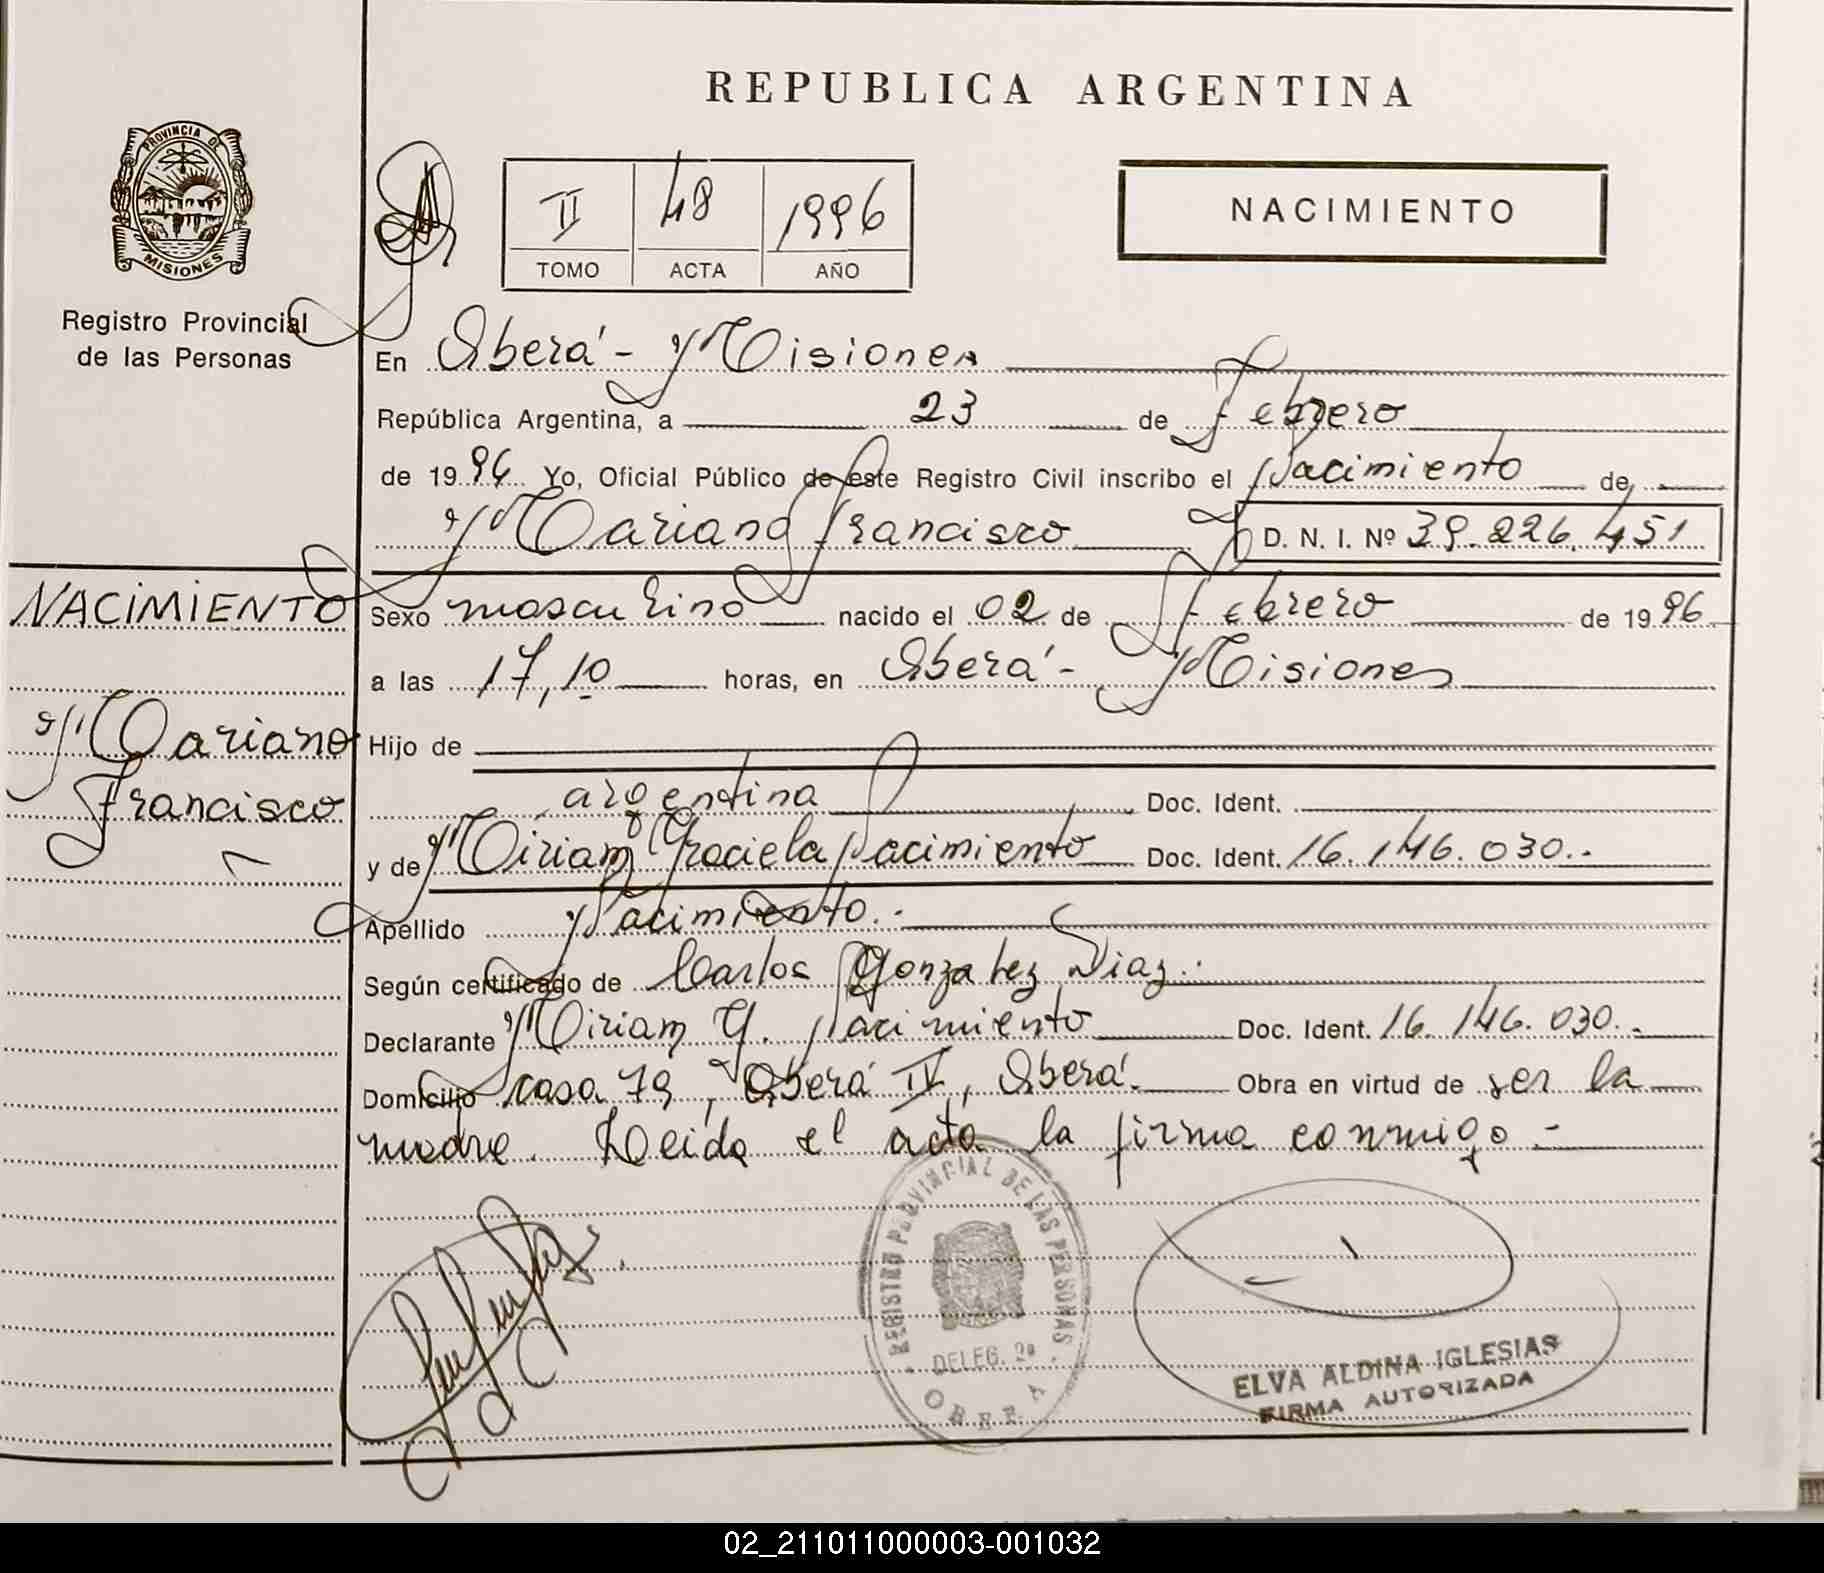 REPUBLICA ARGENTINA
PROVINCIA DE
MISIONES
Registro Provincial
de las Personas
II 48 1996
TOMO ACTA AÑO
NACIMIENTO
En Oberá - Misiones
República Argentina, a 23 de Febrero
de 1996 Yo, Oficial Público de este Registro Civil inscribo el Nacimiento de
Mariano Francisco D. N. I. Nº 39.226.451
NACIMIENTO
Mariano
Francisco
Sexo masculino nacido el 02 de Febrero de 1996
a las 17,10 horas, en Oberá - Misiones
Hijo de
argentina Doc. Ident.
y de Miriam Graciela Nacimiento Doc. Ident. 16.146.030.-
Apellido Nacimiento.-
Según certificado de Carlos Gonzalez Diaz.-
Declarante Miriam G. Nacimiento Doc. Ident. 16.146.030.-
Domicilio casa 79, Oberá IV, Oberá.- Obra en virtud de ser la
madre. Leida el acta la firma conmigo -
REGISTRO PROVINCIAL DE LAS PERSONAS
DELEG. 2a
OBERA
ELVA ALDINA IGLESIAS
FIRMA AUTORIZADA
02_211011000003-001032